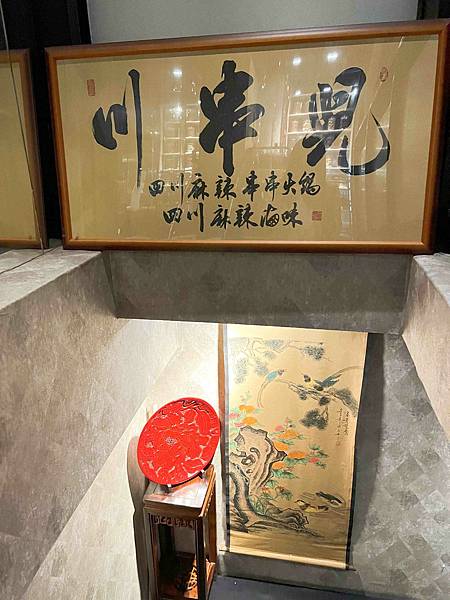 川串兒
四川麻辣串串火鍋
四川麻辣滷味